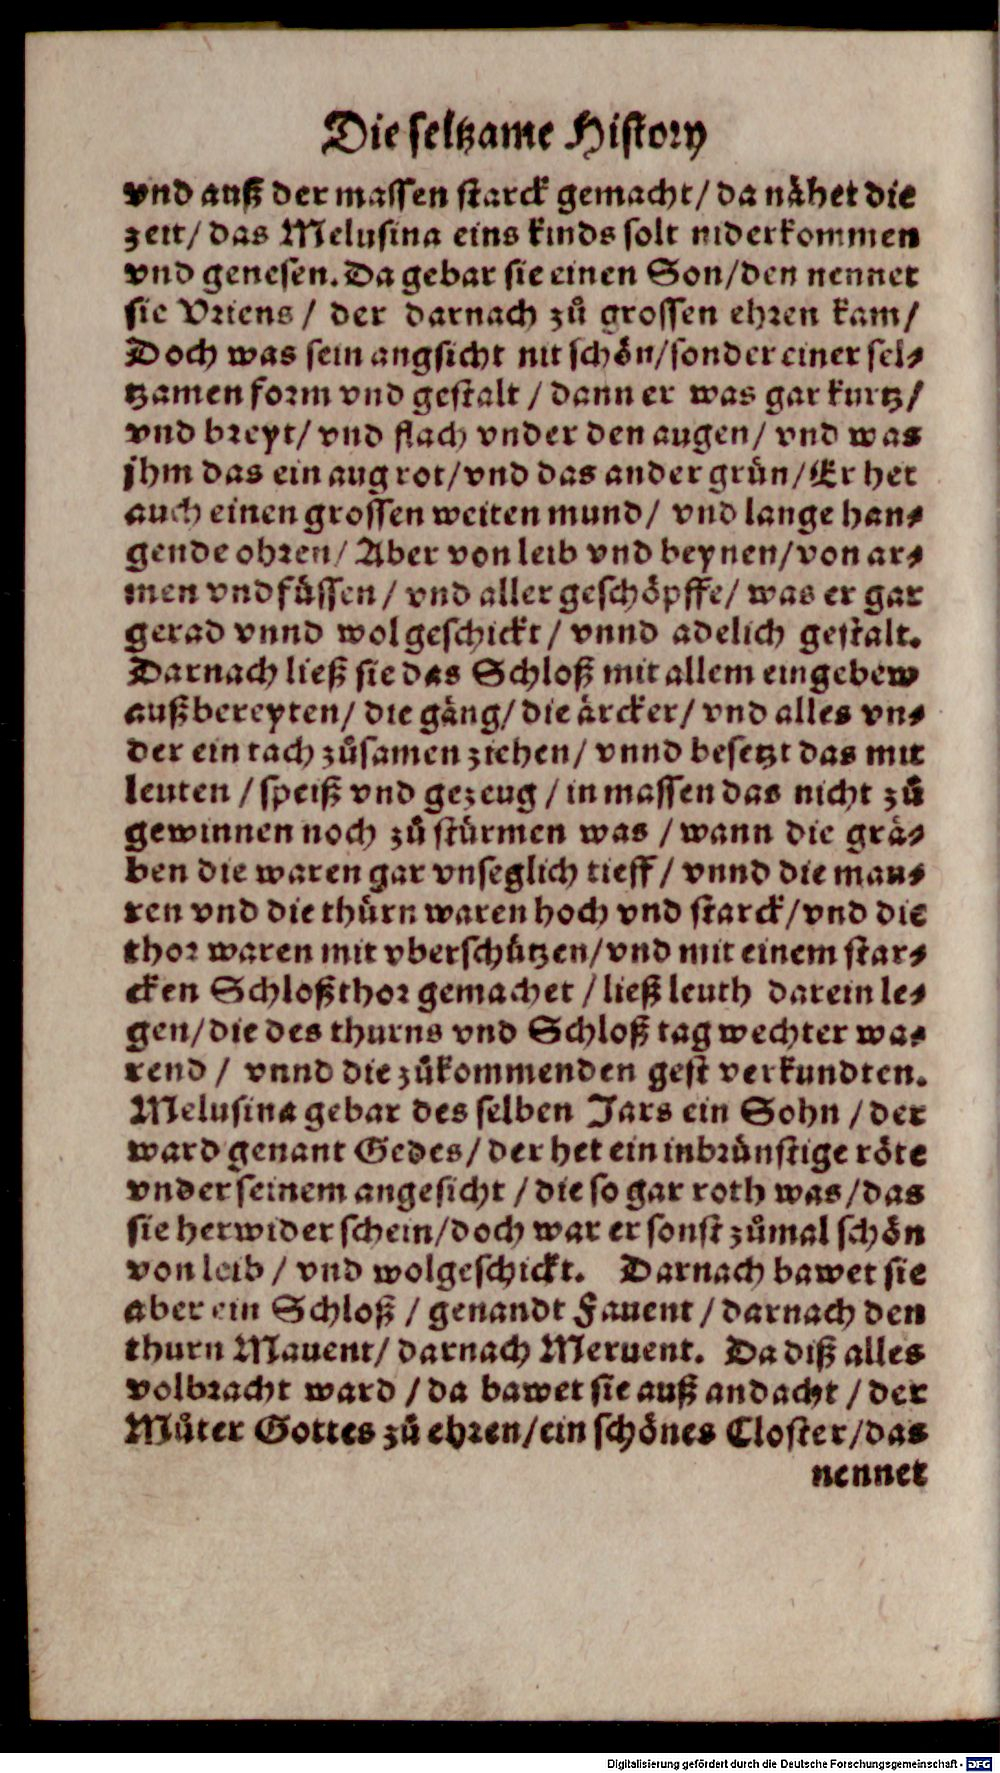 Die seltzame History
vnd auß der massen starck gemacht/ da nåhet die
zeit/ das Melusina eins kinds solt niderkommen
vnd genesen. Da gebar sie einen Son/den nennet
sie Vriens / der darnach zů grossen ehren kam/
Doch was sein angsicht nit schön/sonder einer sel⸗
tzamen form vnd gestalt / dann er was gar kurtz/
vnd breyt/ vnd flach vnder den augen/ vnd was
jhm das ein aug rot/vnd das ander grün/Er het
auch einen grossen weiten mund/ vnd lange han⸗
gende ohren/ Aber von leib vnd beynen/von ar⸗
men vnd füssen / vnd aller geschöpffe/ was er gar
gerad vnnd wol geschickt / vnnd adelich gestalt.
Darnach ließ sie das Schloß mit allem eingebew
außbereyten/ die gäng/ die ärcker/ vnd alles vn⸗
der ein tach zůsamen ziehen/ vnnd besetzt das mit
leuten / speiß vnd gezeug / in massen das nicht zů
gewinnen noch zů stürmen was / wann die grä⸗
ben die waren gar vnseglich tieff / vnnd die mau⸗
ren vnd die thürn waren hoch vnd starck/vnd die
thor waren mit vberschützen/vnd mit einem star⸗
cken Schloßthor gemachet / ließ leuth darein le⸗
gen/die des thurns vnd Schloß tag wechter wa⸗
rend / vnnd die zůkommenden gest verkundten.
Melusina gebar des selben Jars ein Sohn / der
ward genant Gedes/ der het ein inbrünstige röte
vnder seinem angesicht / die so gar roth was/das
sie herwider schein/doch war er sonst zůmal schön
von leib / vnd wolgeschickt. Darnach bawet sie
aber ein Schloß / genandt Fauent / darnach den
thurn Mauent/ darnach Meruent. Da diß alles
volbracht ward / da bawet sie auß andacht / der
Můter Gottes zů ehren/ein schönes Closter/das
nennet
Digitalisierung gefördert durch die Deutsche Forschungsgemeinschaft - DFG